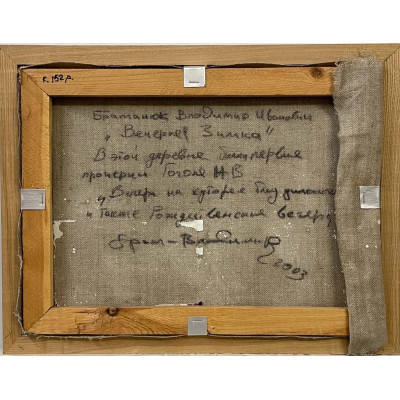 к. 152 р.
Братанюк Владимир Иванович
„Вечерняя Зимка"
В этой деревне были первые
Гоголя Н В
„Вечера на хуторе близ
и также Рождественские вечера
Брат-Владимир
2003